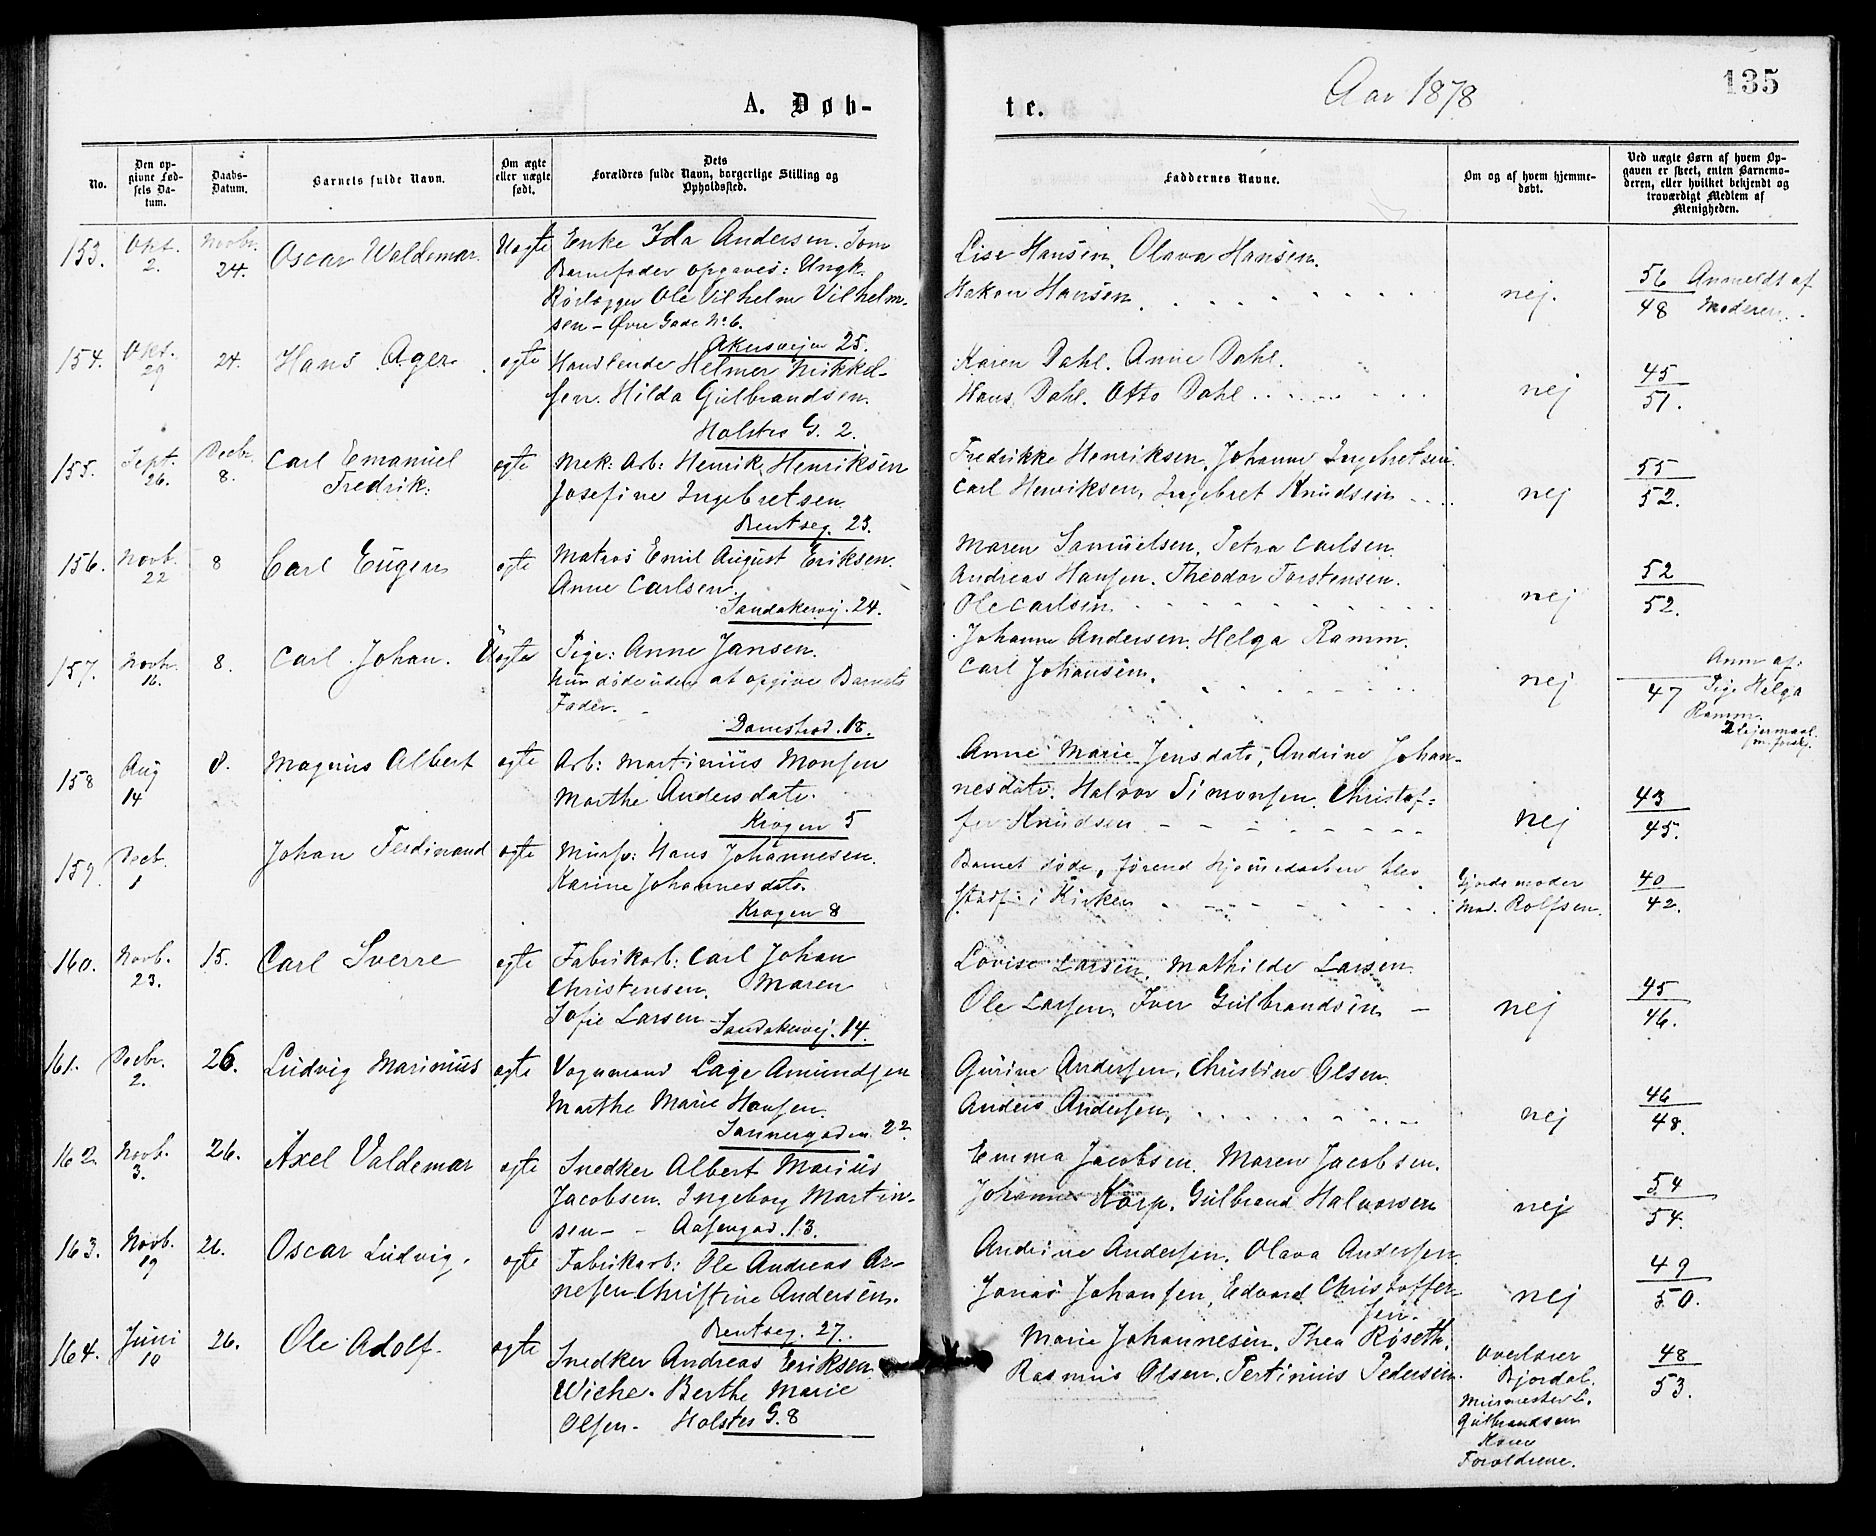 A. Døb-
te.
Aar 1878
135
No.
Den opgivne Fødsels Datum.
Daabs-Datum.
Barnets fulde Navn.
Om ægte eller uægte født.
Dets Forældres fulde Navn, borgerlige Stilling og Opholdssted.
Faddernes Navne.
Om og af hvem hjemmedøbt.
Ved uægte Børn af hvem Opgaven er skeet, enten Barnemoderen, eller hvilket bekjendt og troværdigt Medlem af Menigheden.
153. Okt. 2. Novbr. 24. Oscar Waldemar. Uægte Enke Ida Andersen. Som
Barnefader opgaves: Ungk.
Rørlægger Ole Vilhelm Vilhelm-
sen - Øvre Gade No 6.
Lise Hansen, Olava Hansen,
Hakon Hansen
nej.
56
48
Anmeldt af
Moderen.
154. Okt. 29 24. Hans Ager. ægte
Akersvejen 25.
Handlende Helmer Mikkel-
sen. Hilda Gulbrandsen.
Holstes G. 2.
Karen Dahl. Anne Dahl.
Hans Dahl. Otto Dahl
nej
45
51.
155. Sept. 26. Decbr. 8. Carl Emanuel
Fredrik. ægte
Mek: Arb: Henrik Henriksen
Josefine Ingebretsen
Bentseg. 23.
Fredrikke Henriksen, Johanne Ingebretsen.
Carl Henriksen, Ingebret Knudsen
nej
55
52.
156. Novb. 22 8 Carl Eugen ægte
Matros Emil August Eriksen.
Anne Carlsen.
Sandakervej. 24.
Maren Samuelsen, Petra Carlsen.
Andreas Hansen. Theodor Torstensen.
Ole Carlsen
nej
52
52.
157. Novbr. 16. 8. Carl Johan. Uægte
Pige: Anne Jansen.
hun døde uden at opgive Barnets
Fader.
Damstred. 18.
Johanne Andersen. Helga Ramm.
Carl Johansen.
nej
47
Anm af:
Pige Helga
Ramm.
158 Aug 14 8. Magnus Albert ægte
Arb: Martinius Monsen
Marthe Andersdatr.
Krogen 5
Anne Marie Jensdatr, Andrine Johan-
nesdatr. Halvor Simonsen. Christof-
fer Knudsen
nej
43
45.
159. Decbr. 1 Johan Ferdinand ægte
Mursv: Hans Johannesen.
Karine Johannesdatr.
Krogen 8
Barnet døde, førend Hjemmedaaben blev
stadf: i Kirken
Gjordemoder
Mad. Rolfsen.
40
42.
160. Novb. 23. 15. Carl Sverre ægte
Fabrikarb: Carl Johan
Christensen. Maren
Sofie Larsen
Sandakervej. 14.
Lovise Larsen, Mathilde Larsen
Ole Larsen, Iver Gulbrandsen
nej
45
46.
161. Decbr. 2. 26. Ludvig Marinius ægte
Vognmand Lage Amundsen
Marthe Marie Hansen.
Sannergaden 22
Gurine Andersen, Christine Olsen
Anders Andersen,
nej
46
48.
162. Novb. 3. 26. Axel Valdemar ægte
Snedker Albert Marius
Jacobsen. Ingeborg Martin-
sen - Aasengad. 13.
Emma Jacobsen. Maren Jacobsen.
Johannes Korp. Gulbrand Halvorsen
nej
54
54.
163. Novb. 19 26. Oscar Ludvig. ægte
Fabrikarb: Ole Andreas Ar-
nesen Christine Andersen.
Bentseg. 27.
Andrine Andersen. Olava Andersen.
Jonas Johansen, Edvard Christoffer-
sen.
nej
49
50.
164. Juni 10 26. Ole Adolf. ægte
Snedker Andreas Eriksen
Wiche. Berthe Marie
Olsen - Holstes G. 8
Marie Johannesen. Thea Røseth.
Rasmus Olsen. Pertinius Pedersen.
Overlærer
Bjørdal.
Murmester L.
Gulbrandsen
Forældrene.
48
53.